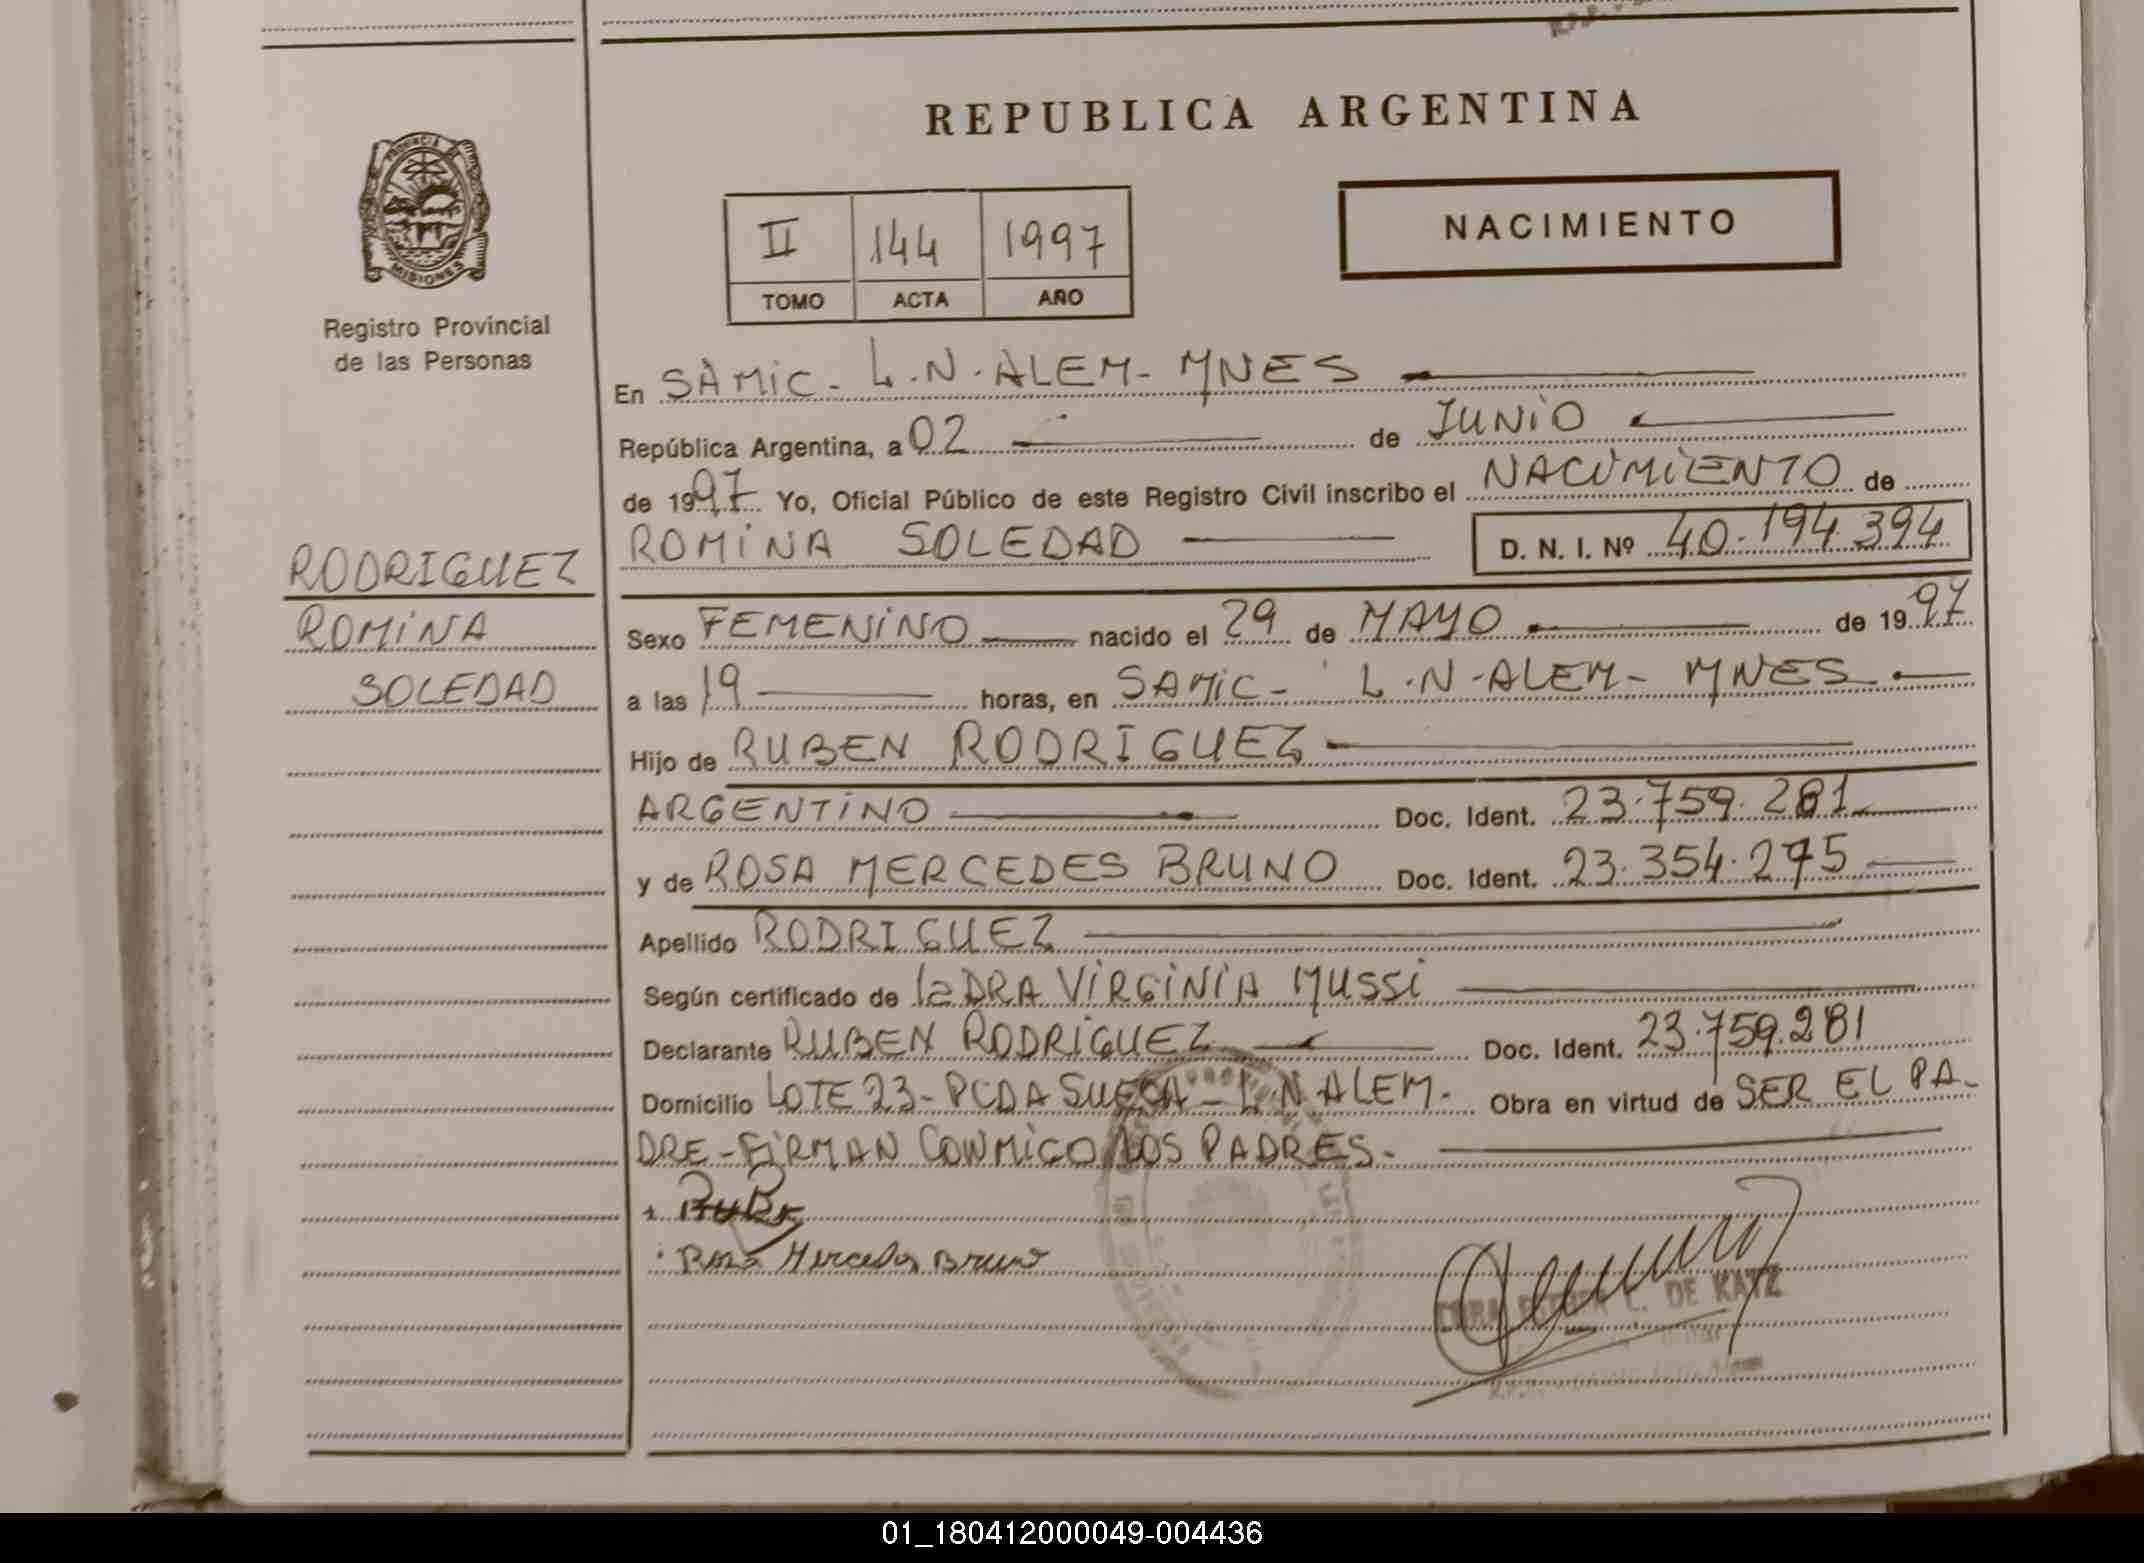 REPUBLICA ARGENTINA
PROVINCIA DE
MISIONES
Registro Provincial
de las Personas
II 144 1997
TOMO ACTA AÑO
NACIMIENTO
En SAMIC - L.N. ALEM - MNES
República Argentina, a 02 de JUNIO
de 1997 Yo, Oficial Público de este Registro Civil inscribo el NACIMIENTO de
ROMINA SOLEDAD D. N. I. Nº 40.194.394
RODRIGUEZ
ROMINA
SOLEDAD
Sexo FEMENINO nacido el 29 de MAYO de 1997
a las 19 horas, en SAMIC - L.N-ALEM - MNES
Hijo de RUBEN RODRIGUEZ
ARGENTINO Doc. Ident. 23.759.281
y de ROSA MERCEDES BRUNO Doc. Ident. 23.354.275
Apellido RODRIGUEZ
Según certificado de la DRA VIRGINIA MUSSI
Declarante RUBEN RODRIGUEZ Doc. Ident. 23.759.281
Domicilio LOTE 23 - PCDA SUECA - L.N ALEM. Obra en virtud de SER EL PA-
DRE - FIRMAN CONMIGO LOS PADRES.-
Rosa Mercedes Bruno
DE KATZ
01_180412000049-004436